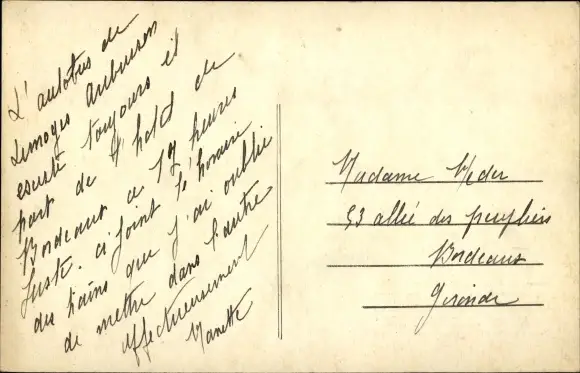 L'autobus de
Limoges Aubusson
existe toujours il
part de l'hotel de
Bordeaux a 17 heures
juste. ci joint l'horaire
des trains que j'ai oublié
de mettre dans l'autre
affectueusement
Manette
Madame
53 allée des peupliers
Bordeaux
Gironde